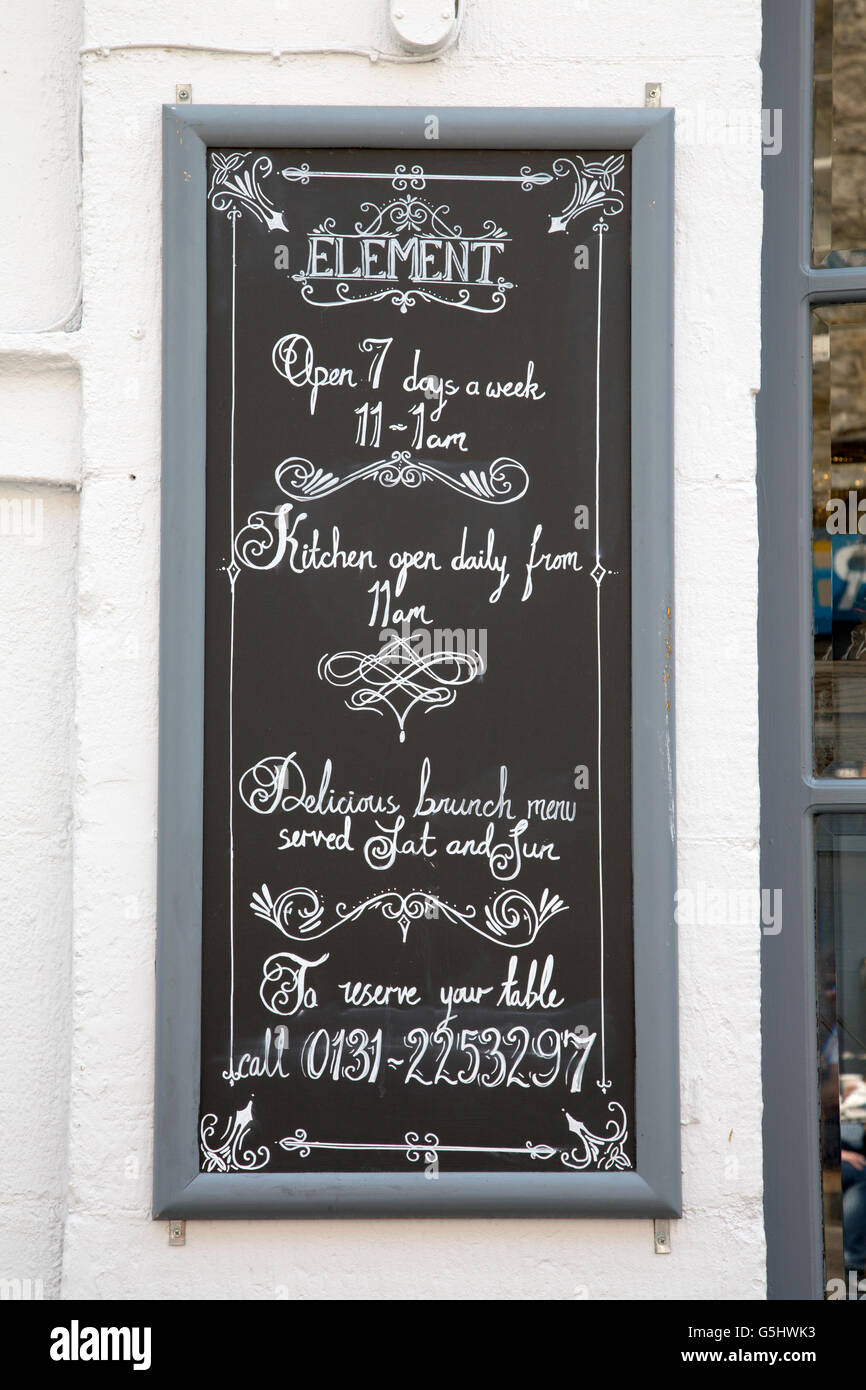 ELEMENT
Open 7 days a week
11-1am
Kitchen open daily from
11am
Delicious brunch menu
served Sat and Sun
To reserve your table
call 0131-2253297
alamy
Image ID: G5HWK3
www.alamy.com